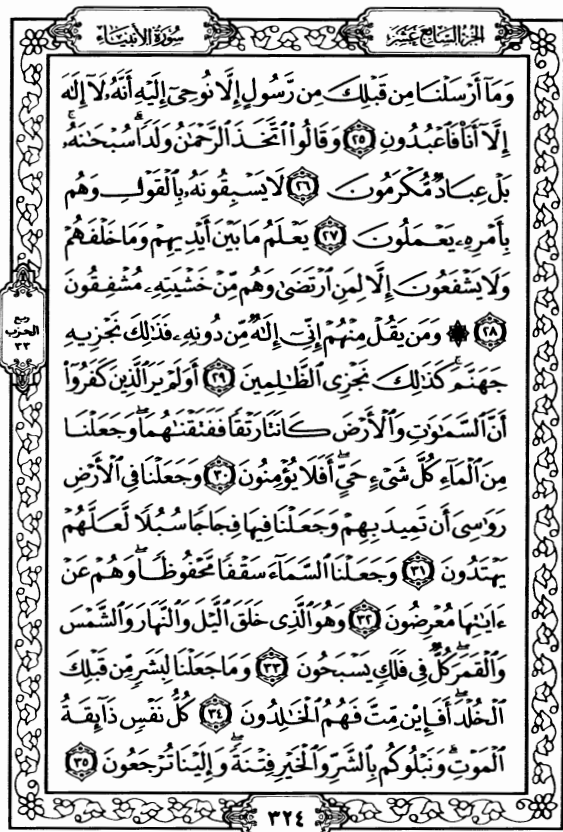 سُورَةُ الأَنبِيَاء
الجزء السابع عشر
وَمَآ أَرۡسَلۡنَا مِن قَبۡلِكَ مِن رَّسُولٍ إِلَّا نُوحِيٓ إِلَيۡهِ أَنَّهُۥ لَآ إِلَٰهَ
إِلَّآ أَنَا۠ فَٱعۡبُدُونِ ٢٥ وَقَالُواْ ٱتَّخَذَ ٱلرَّحۡمَٰنُ وَلَدٗاۗ سُبۡحَٰنَهُۥۚ
بَلۡ عِبَادٞ مُّكۡرَمُونَ ٢٦ لَا يَسۡبِقُونَهُۥ بِٱلۡقَوۡلِ وَهُم
بِأَمۡرِهِۦ يَعۡمَلُونَ ٢٧ يَعۡلَمُ مَا بَيۡنَ أَيۡدِيهِمۡ وَمَا خَلۡفَهُمۡ
وَلَا يَشۡفَعُونَ إِلَّا لِمَنِ ٱرۡتَضَىٰ وَهُم مِّنۡ خَشۡيَتِهِۦ مُشۡفِقُونَ
٢٨ ۞ وَمَن يَقُلۡ مِنۡهُمۡ إِنِّيٓ إِلَٰهٞ مِّن دُونِهِۦ فَذَٰلِكَ نَجۡزِيهِ
جَهَنَّمَۚ كَذَٰلِكَ نَجۡزِي ٱلظَّٰلِمِينَ ٢٩ أَوَلَمۡ يَرَ ٱلَّذِينَ كَفَرُوٓاْ
أَنَّ ٱلسَّمَٰوَٰتِ وَٱلۡأَرۡضَ كَانَتَا رَتۡقٗا فَفَتَقۡنَٰهُمَاۖ وَجَعَلۡنَا
مِنَ ٱلۡمَآءِ كُلَّ شَيۡءٍ حَيٍّۚ أَفَلَا يُؤۡمِنُونَ ٣٠ وَجَعَلۡنَا فِي ٱلۡأَرۡضِ
رَوَٰسِيَ أَن تَمِيدَ بِهِمۡ وَجَعَلۡنَا فِيهَا فِجَاجٗا سُبُلٗا لَّعَلَّهُمۡ
يَهۡتَدُونَ ٣١ وَجَعَلۡنَا ٱلسَّمَآءَ سَقۡفٗا مَّحۡفُوظٗاۖ وَهُمۡ عَنۡ
ءَايَٰتِهَا مُعۡرِضُونَ ٣٢ وَهُوَ ٱلَّذِي خَلَقَ ٱلَّيۡلَ وَٱلنَّهَارَ وَٱلشَّمۡسَ
وَٱلۡقَمَرَۖ كُلّٞ فِي فَلَكٖ يَسۡبَحُونَ ٣٣ وَمَا جَعَلۡنَا لِبَشَرٖ مِّن قَبۡلِكَ
ٱلۡخُلۡدَۖ أَفَإِيْن مِّتَّ فَهُمُ ٱلۡخَٰلِدُونَ ٣٤ كُلُّ نَفۡسٖ ذَآئِقَةُ
ٱلۡمَوۡتِۗ وَنَبۡلُوكُم بِٱلشَّرِّ وَٱلۡخَيۡرِ فِتۡنَةٗۖ وَإِلَيۡنَا تُرۡجَعُونَ ٣٥
ربع
الحزب
٣٣
٣٢٤